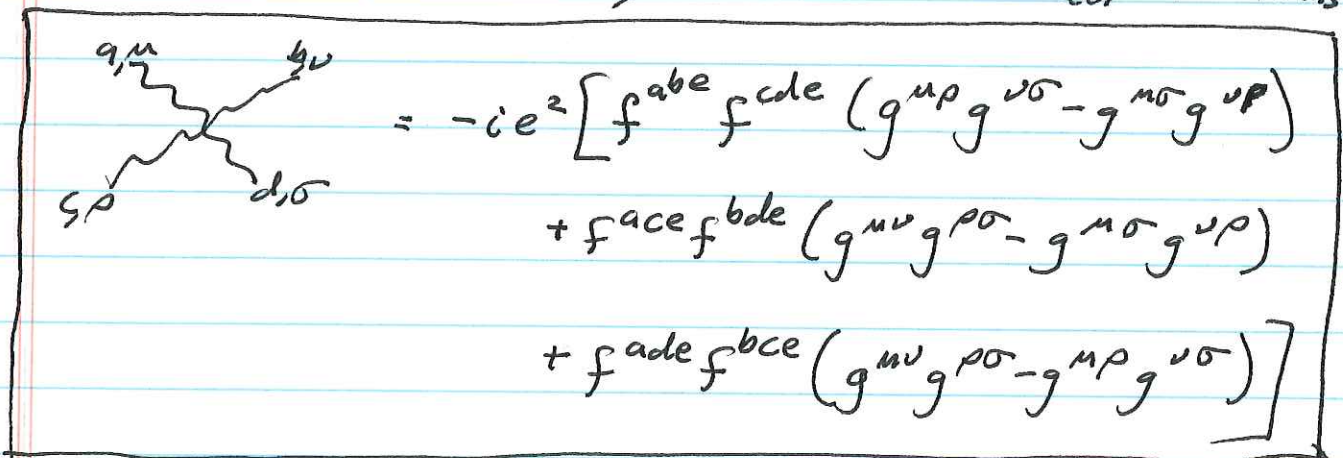 a,μ b,ν = -ie²[f^{abe} f^{cde} (g^{μρ} g^{νσ} - g^{μσ} g^{νρ})
c,ρ d,σ + f^{ace} f^{bde} (g^{μν} g^{ρσ} - g^{μσ} g^{νρ})
+ f^{ade} f^{bce} (g^{μν} g^{ρσ} - g^{μρ} g^{νσ})]